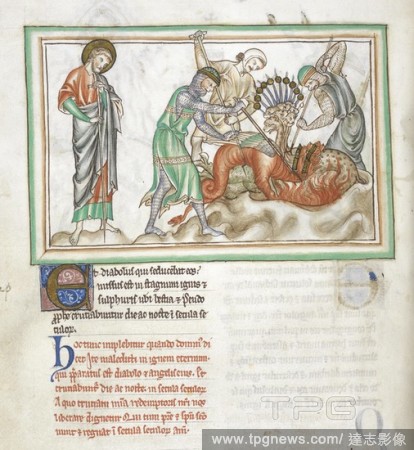 Et diabolus qui seducebat eos
missus est in stagnum ignis &
sulphuris ubi bestia & pseudo
cruciabuntur die ac nocte in secula se
culor.
Hoc tunc implebitur quando domin' di
cet Ite maledicti in ignem eternum
qui paratus est diabolo & angelis eius. Et
cruciabunt die ac nocte in secula seculor
A quo cruciatu redemptoris nos
liberare dignetur Qui cum &
& regnat in secula seculor
TPG
www.tpgnews.com / 達志影像